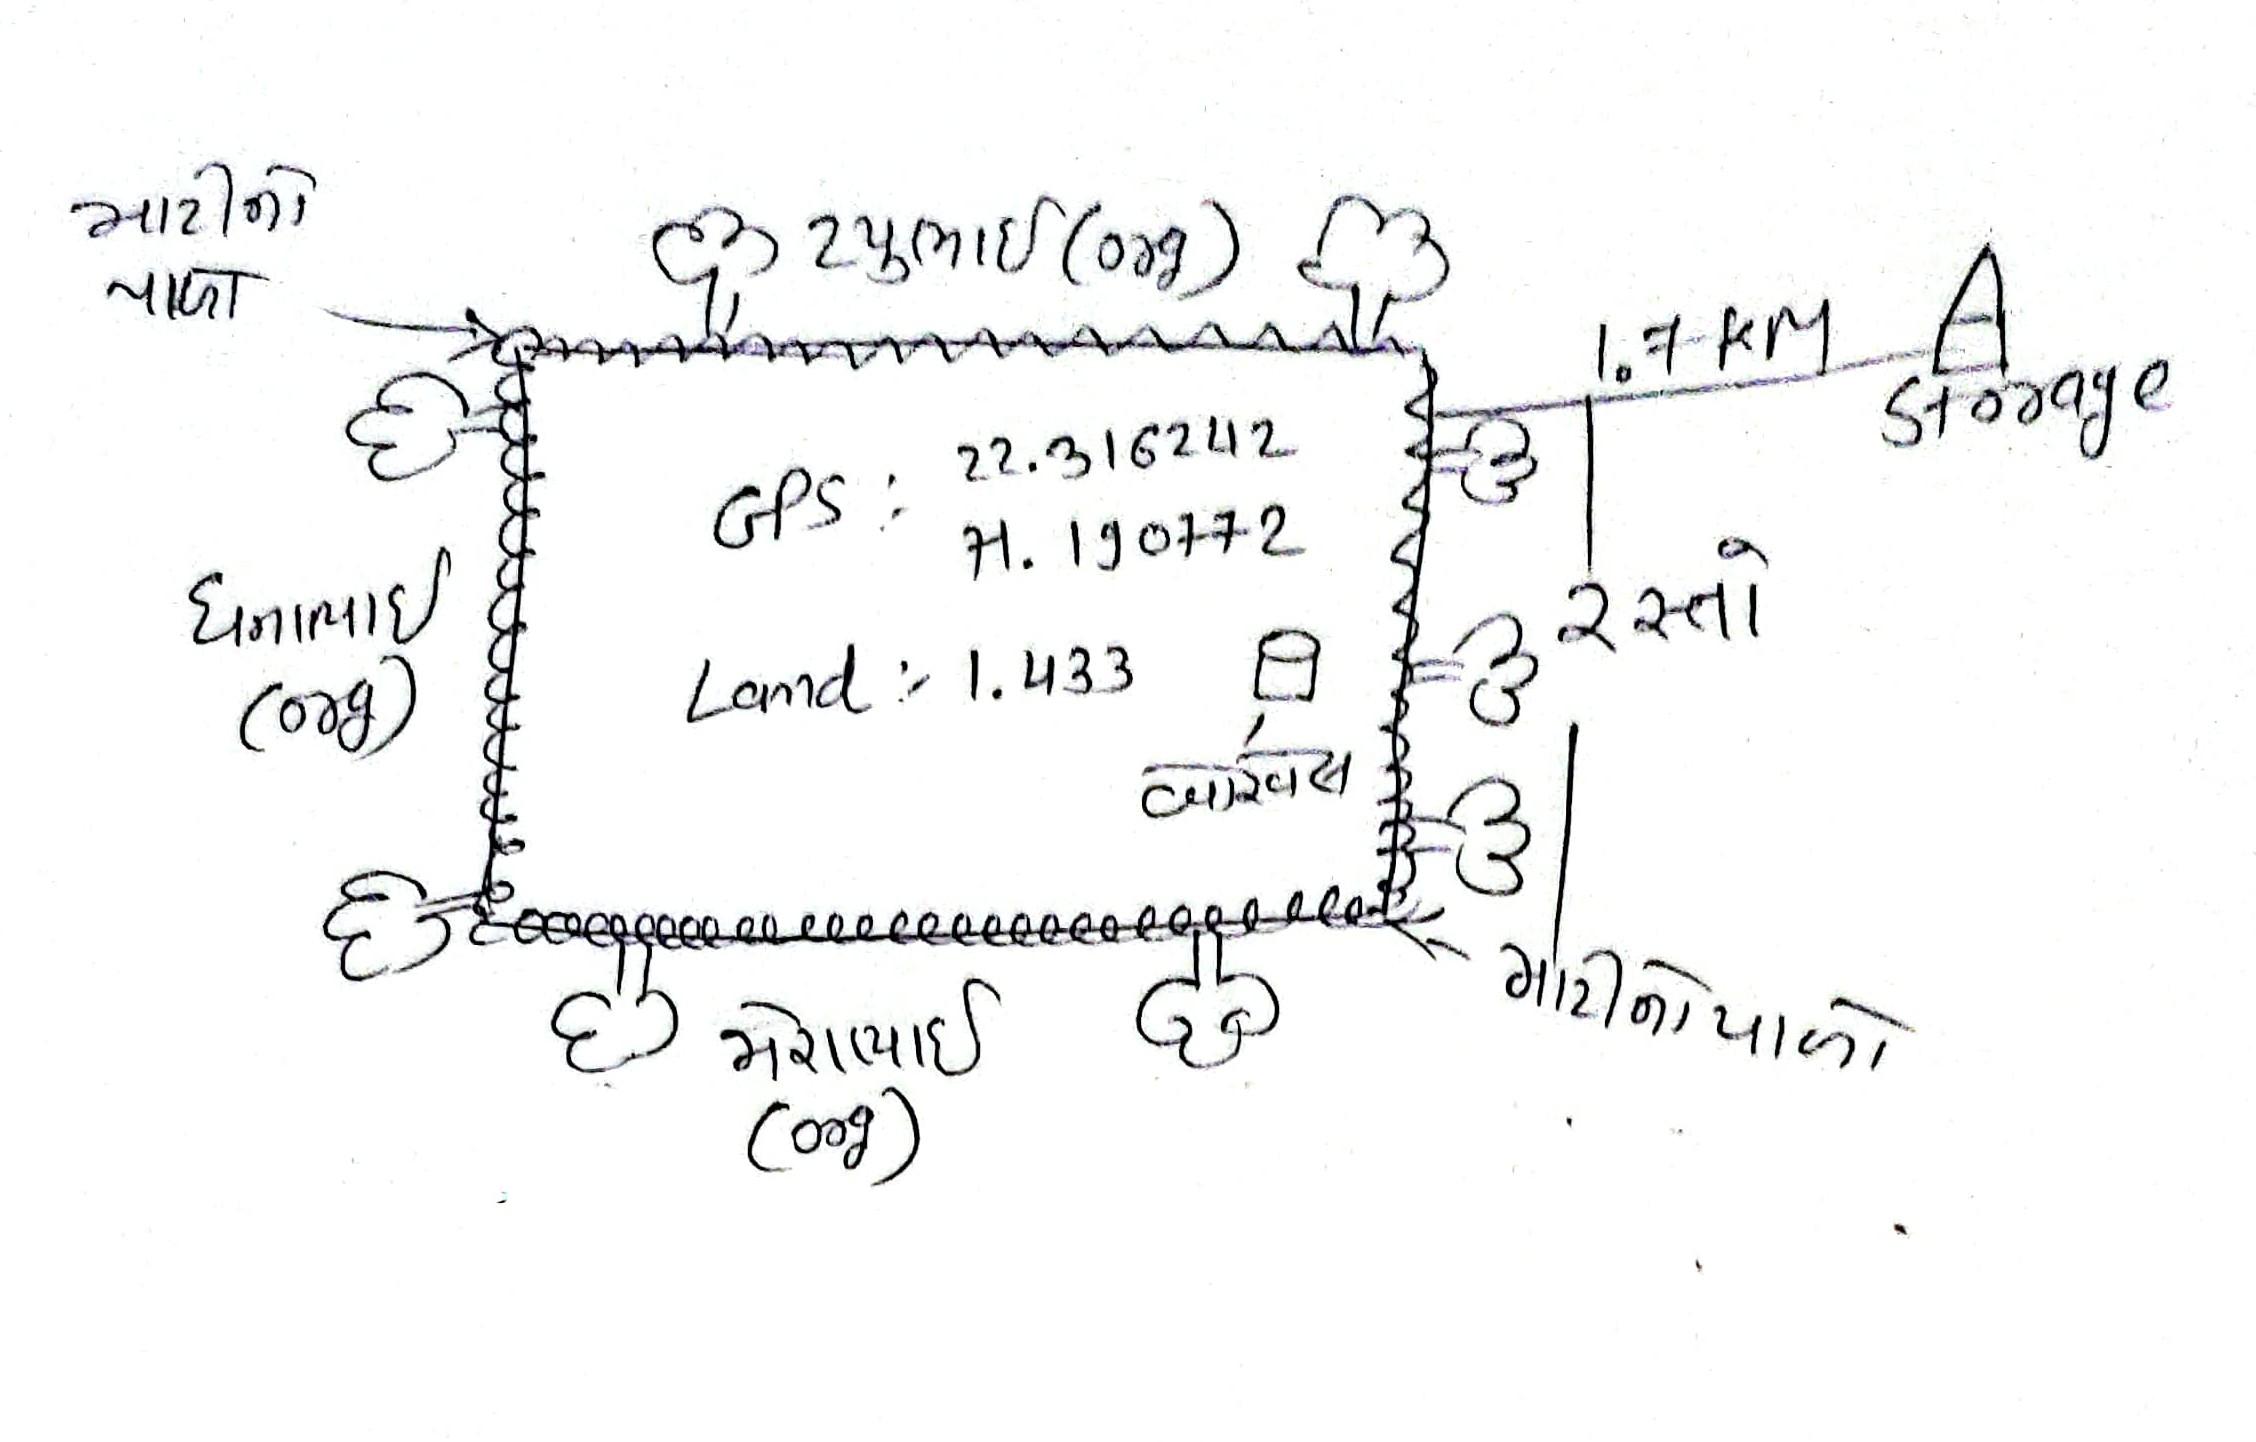 માટીનો
પાળો
રપુભાઈ (org)
1.7 KM
Storage
GPS :
22.316242
71.190772
ધનાભાઈ
(org)
રસ્તો
Land :- 1.433
બોરવેલ
માટીનો પાળો
મેરાભાઈ
(org)